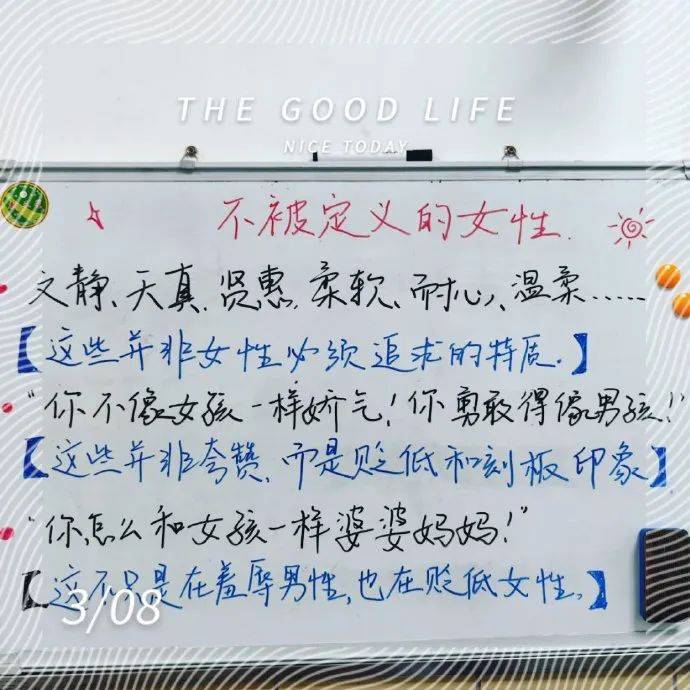 THE GOOD LIFE
NICE TODAY
不被定义的女性.
文静、天真、贤惠、柔软、耐心、温柔......
【这些并非女性必须追求的特质.】
"你不像女孩一样娇气!你勇敢得像男孩!"
【这些并非夸赞,而是贬低和刻板印象】
"你怎么和女孩一样婆婆妈妈!"
【这不只是在羞辱男性,也在贬低女性.】
3/08